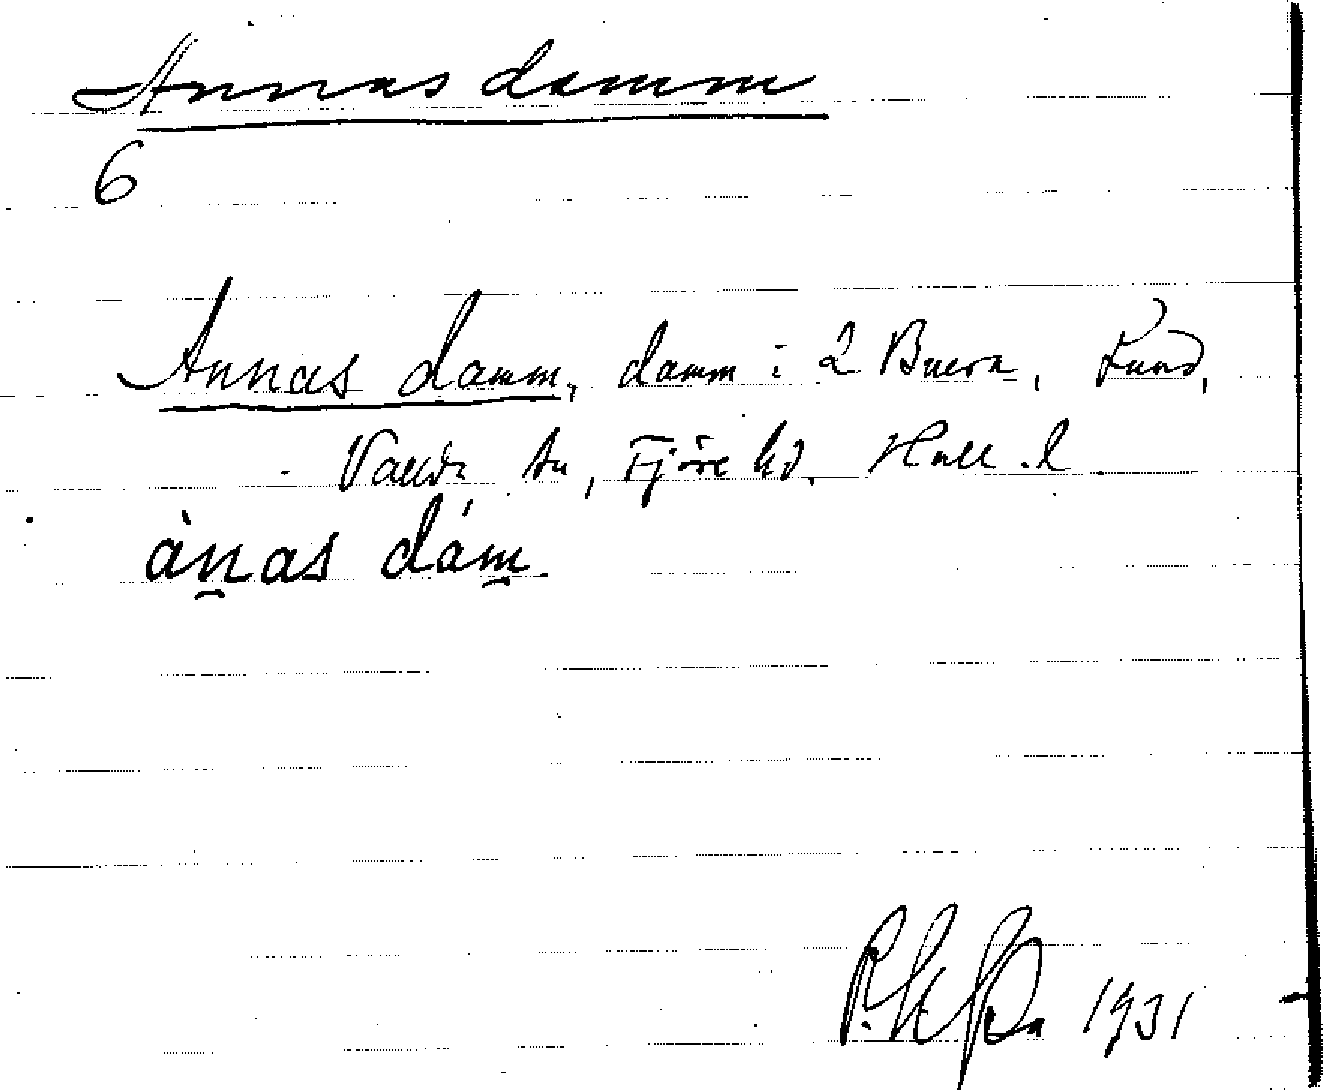 Annas damm
6
Annas damm, damm i 2 Buera, Lund,
Valida sn, Fjäre hd. Hall. l.
ànas dám
P. 1931